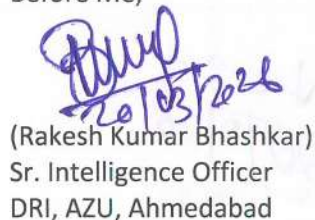 Before Me,
20/03/2026
(Rakesh Kumar Bhashkar)
Sr. Intelligence Officer
DRI, AZU, Ahmedabad